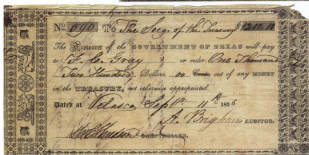 No. 690 To The Secy of the Treasury
The Treasurer of the GOVERNMENT OF TEXAS will pay
F. C. Gray or order One Thousand
Two Hundred Dollars 00 Cents out of any money
in the TREASURY, not otherwise appropriated.
Dated at Velasco Sept. 11th 1836
A. Brigham AUDITOR.